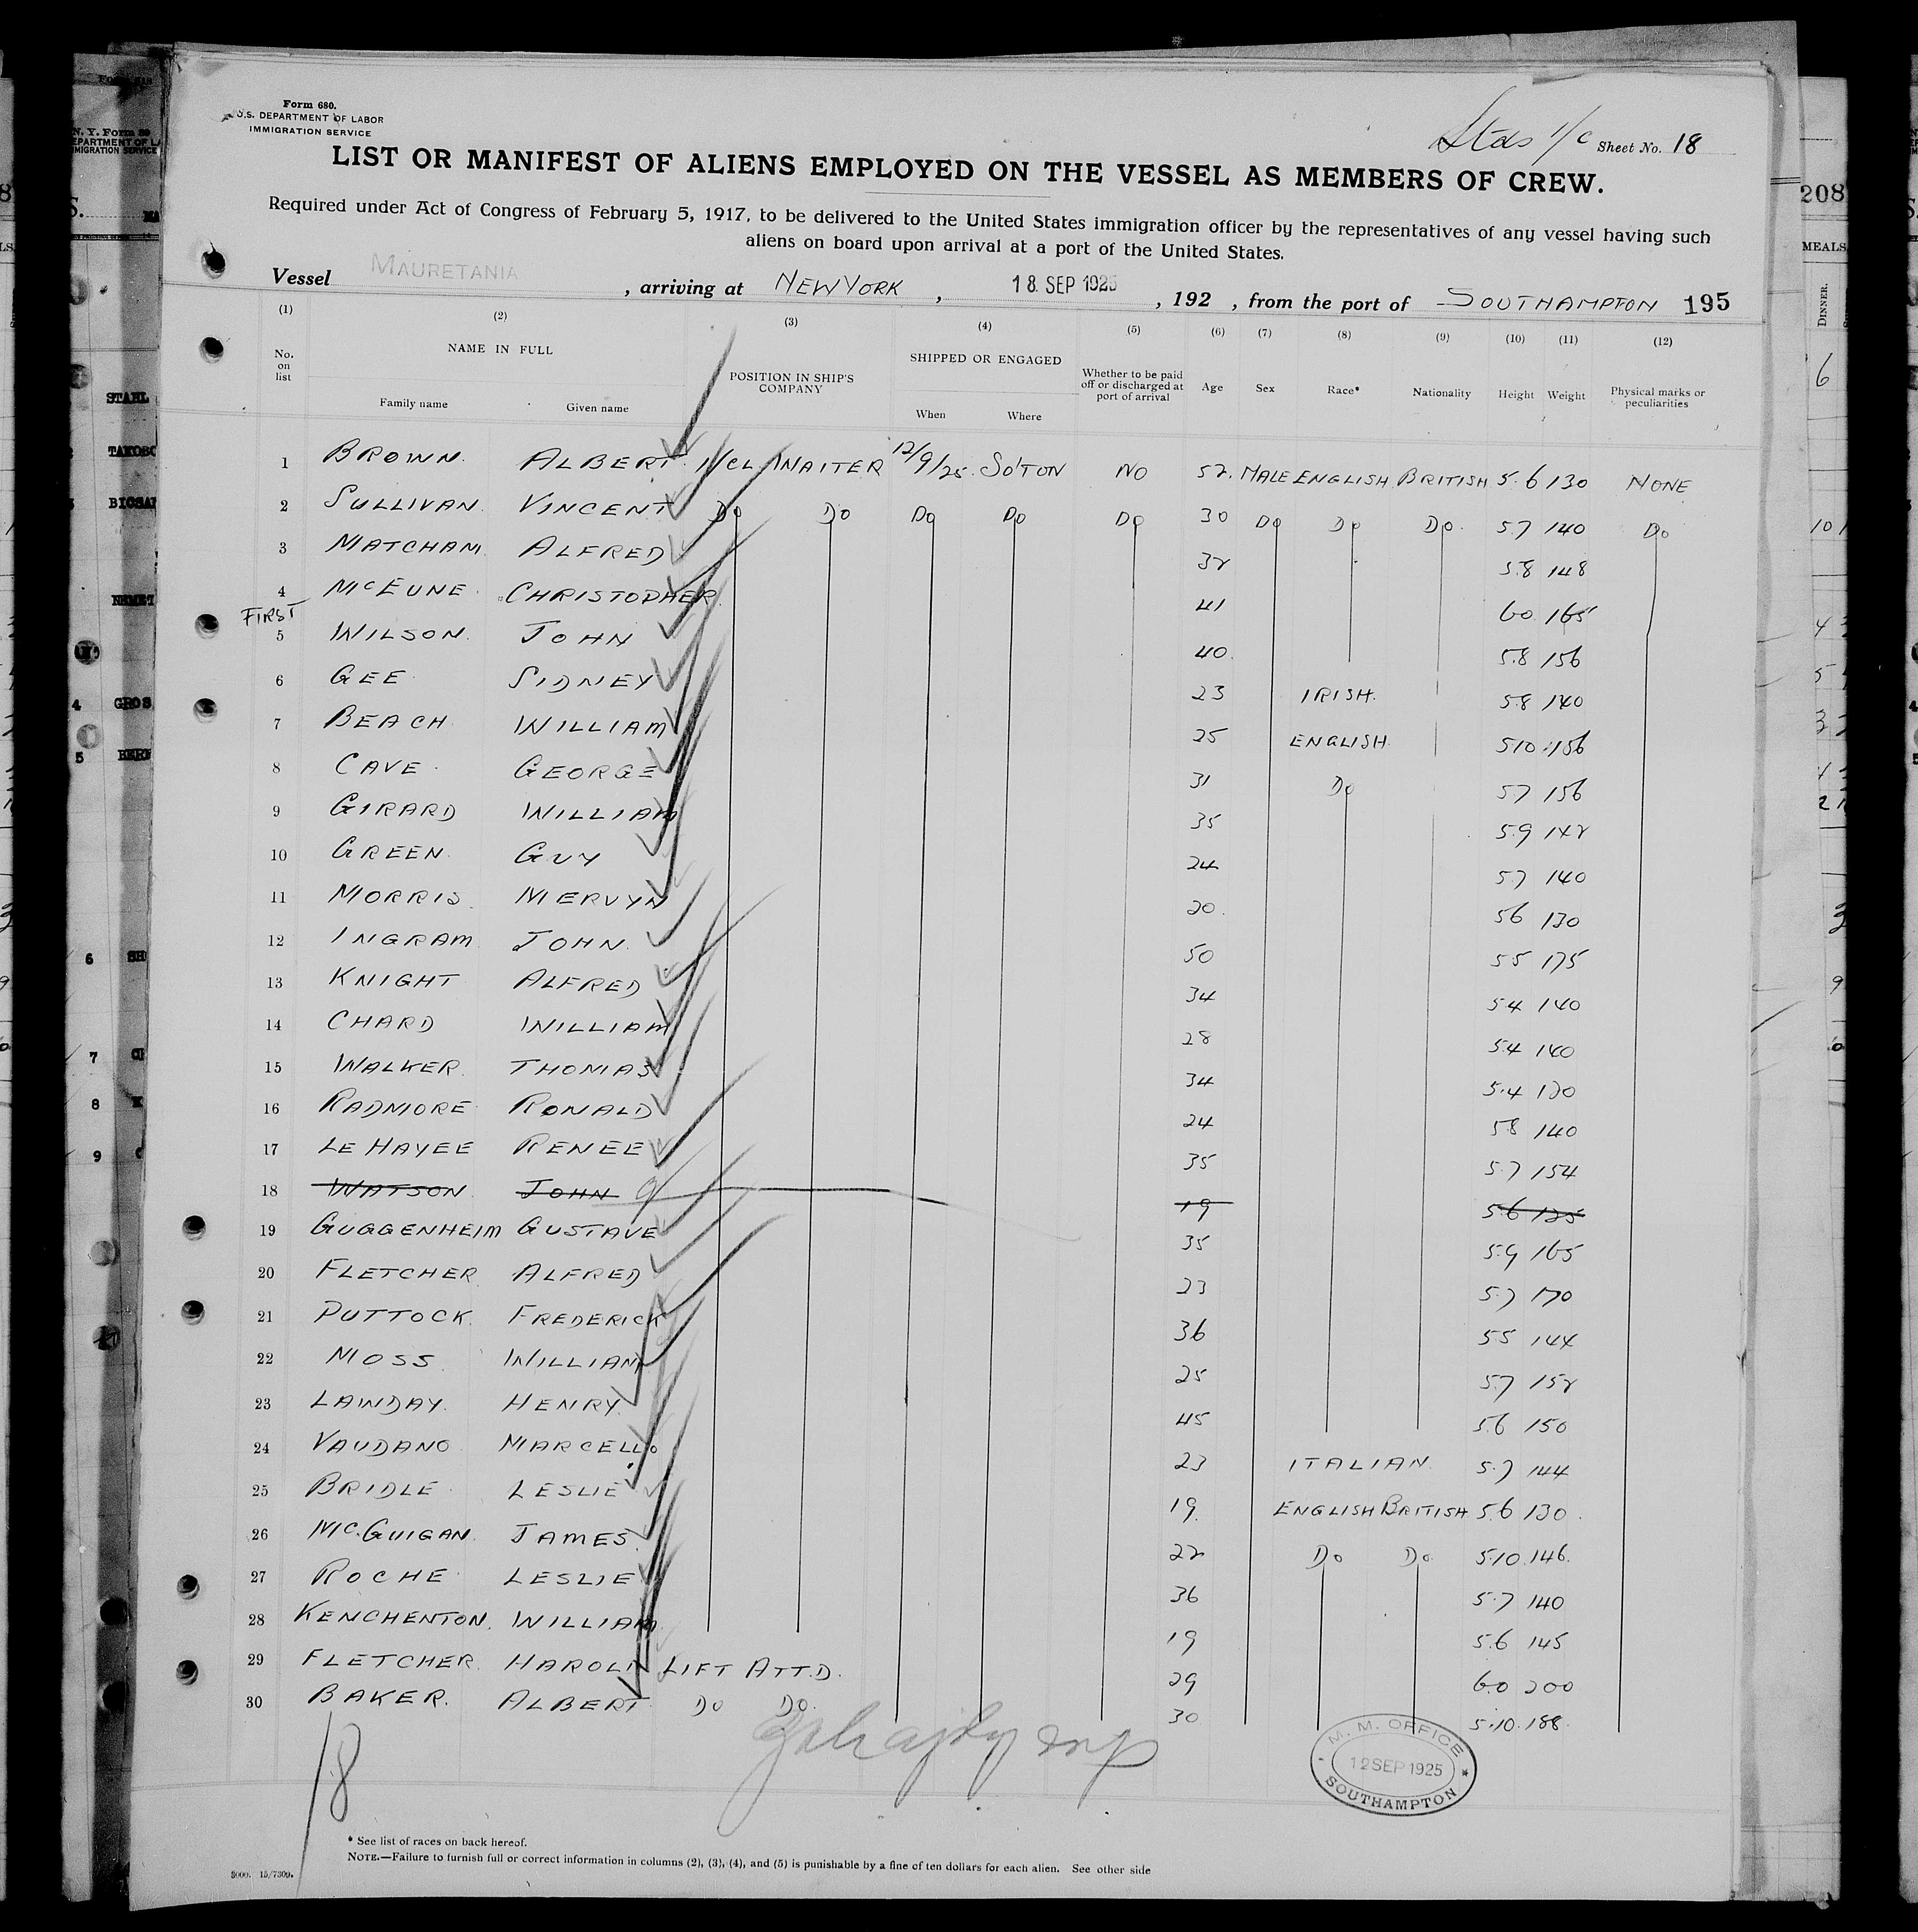 Form 680.
U.S. DEPARTMENT OF LABOR
IMMIGRATION SERVICE
Stds 1/c Sheet No. 18
LIST OR MANIFEST OF ALIENS EMPLOYED ON THE VESSEL AS MEMBERS OF CREW.
Required under Act of Congress of February 5, 1917, to be delivered to the United States immigration officer by the representatives of any vessel having such
aliens on board upon arrival at a port of the United States.
Vessel MAURETANIA, arriving at NEW YORK, 18 SEP 1925, 192 , from the port of SOUTHAMPTON 195
(1) (2) (3) (4) (5) (6) (7) (8) (9) (10) (11) (12)
No. on list NAME IN FULL Family name Given name POSITION IN SHIP'S COMPANY SHIPPED OR ENGAGED When Where Whether to be paid off or discharged at port of arrival Age Sex Race* Nationality Height Weight Physical marks or peculiarities
1 BROWN. ALBERT. 1/CL WAITER 12/9/25. SO'TON NO 52. MALE ENGLISH BRITISH 5.6 130 NONE
2 SULLIVAN. VINCENT Do Do Do Do Do 30 Do Do Do. 5.7 140 Do
3 MATCHAM ALFRED 32 5.8 148
4 McEUNE CHRISTOPHER 41 6.0 165
FIRST
5 WILSON. JOHN 40. 5.8 156
6 GEE SIDNEY 23 IRISH. 5.8 140
7 BEACH WILLIAM 25 ENGLISH. 5.10 156
8 CAVE GEORGE 31 Do 5.7 156
9 GIRARD WILLIAM 35 5.9 142
10 GREEN. GUY 24 5.7 140
11 MORRIS. MERVYN 20. 5.6 130
12 INGRAM JOHN. 50 5.5 175
13 KNIGHT ALFRED 34 5.4 140
14 CHARD WILLIAM 28 5.4 140
15 WALKER THOMAS 34 5.4 130
16 RADMORE RONALD 24 5.8 140
17 LE HAYEE RENEE 35 5.7 154
18 WATSON JOHN 19 5.6 125
19 GUGGENHEIM GUSTAVE 35 5.9 165
20 FLETCHER ALFRED 23 5.7 170
21 PUTTOCK. FREDERICK 36 5.5 144
22 MOSS WILLIAM 25 5.7 152
23 LAWDAY. HENRY. 45 5.6 150
24 VAUDANO MARCELLO 23 ITALIAN. 5.7 144
25 BRIDLE LESLIE 19. ENGLISH BRITISH 5.6 130.
26 McGUIGAN. JAMES. 22 Do Do. 5.10. 146.
27 ROCHE LESLIE 36 5.7 140
28 KENCHENTON. WILLIAM 19 5.6 145
29 FLETCHER. HAROLD LIFT ATT.D. 29 6.0 200
30 BAKER. ALBERT Do Do. 30 5.10. 188.
18
M. M. OFFICE
12 SEP 1925
SOUTHAMPTON
* See list of races on back hereof.
NOTE.—Failure to furnish full or correct information in columns (2), (3), (4), and (5) is punishable by a fine of ten dollars for each alien. See other side
3000. 15/7309.
208
MEALS
DINNER.
STAHL
GROS